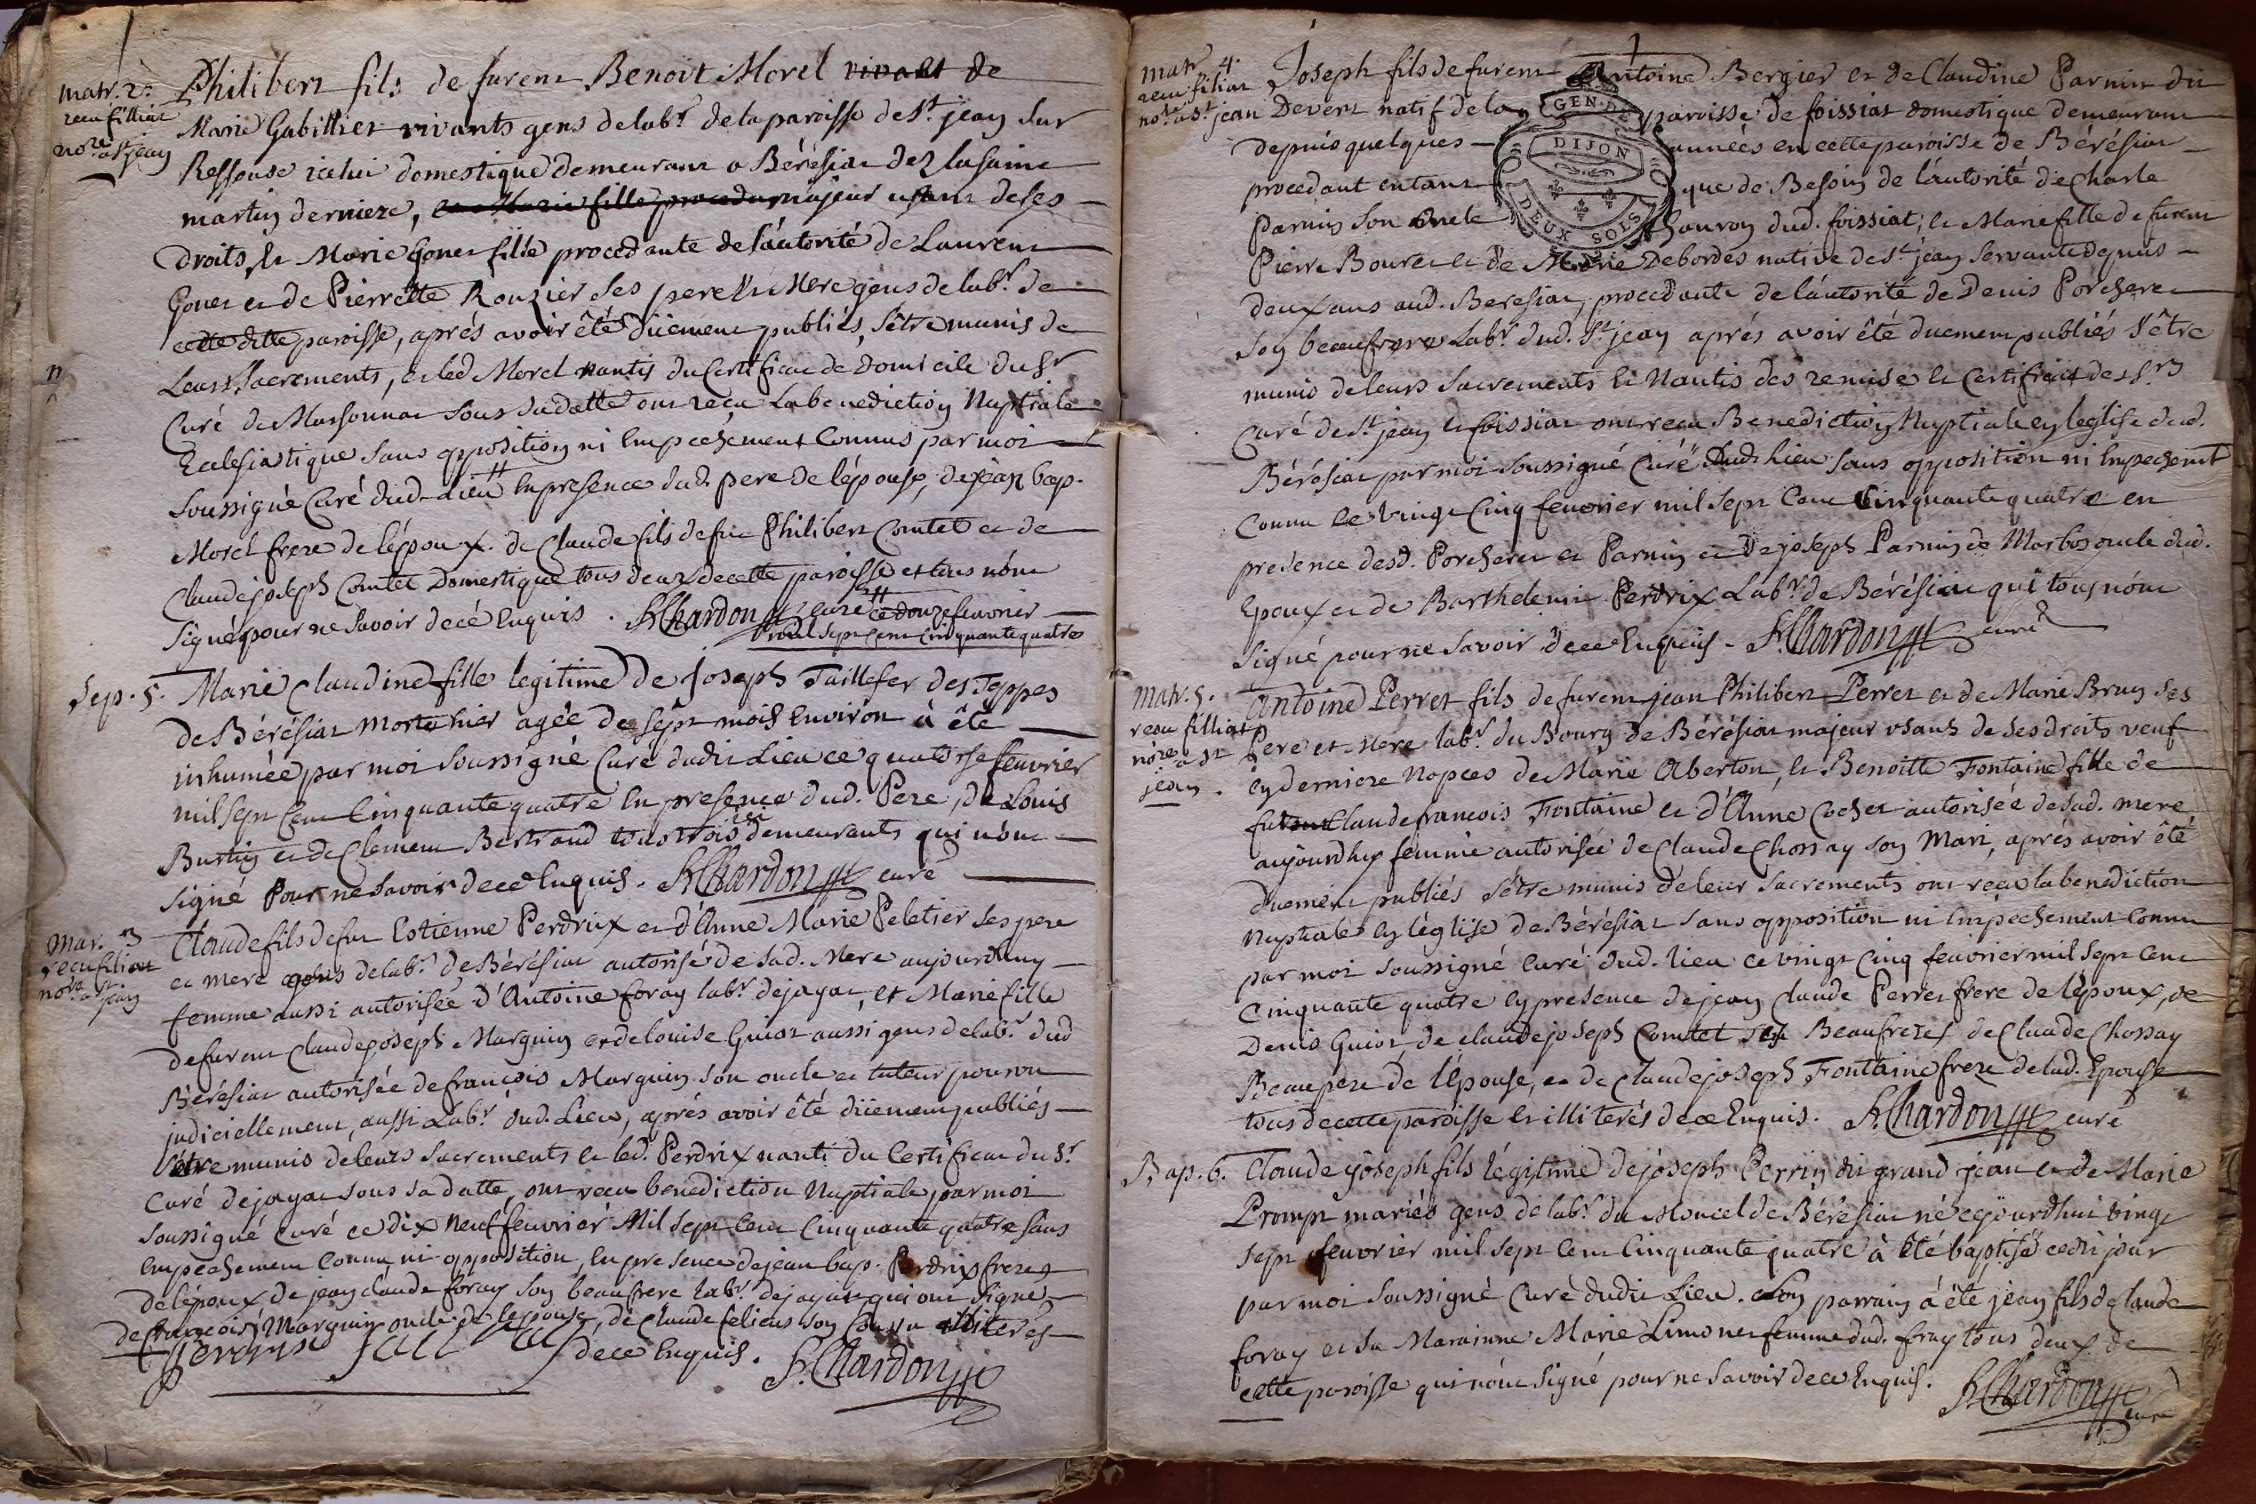 Matr. 2.
recu filliat
nore a St jean
Philibert fils de furent Benoit Morel vivant de
Marie Gabillier vivants gens de labr de la paroisse de St jean sur
Ressouse icelui domestique demeurant a Bérésiat dez la saint
martin derniere, majeur usant de ses
droits, et Marie Gonet fille procedante de l'autorité de Laurent
Gonet et de Pierrette Rouzier ses pere et Mere gens de labr de
cette ditte paroisse, aprés avoir êté düement publiés, s'être munis de
Leurs Sacrements, et led Morel nantis du Certificat de domicile du Sr
Curé de Marsonnat sous sa datte ont reçu La benediction Nuptiale
Ecclesiastique sans opposition ni Empechement Connus par moi
soussigné Curé dud. Lieu En presence dud. pere de l'épouse, de jean bap.
Morel frere de l'époux. de Claude fils de fut Philibert Comtet et de
Claude joseph Comtet Domestique tous deux de cette paroisse et tous n'ont
signé pour ne savoir de ce Enquis. Chardon curé
ce douze feuvrier
mil sept cent Cinquante quatre
Sep. 5.
Marie Claudine fille legitime de Joseph Taillefer des Teppes
de Bérésiat morte hier agée de sept mois Environ à êté
inhumée par moi soussigné Curé dudit Lieu ce quatorse feuvrier
mil sept Cent Cinquante quatre En presence dud. Pere, de Louis
Burtin et de Clement Bertrand tous trois demeurants qui n'ont
signé Pour ne savoir de ce Enquis. Chardon curé
Mar. 3
recu filliat
nore a St jean
Claude fils de fut Estienne Perdrix et d'Anne Marie Peletier ses pere
et mere gens de labr de Bérésiat autorisé de sad. Mere aujourdhuy
femme aussi autorisée d'Antoine foray labr de jayat, et Marie fille
de furent Claude joseph Marguin et de louise Guiot aussi gens de labr dud
Bérésiat autorisée de francois Marguin son oncle et tuteur pourvu
judiciellement, aussi Labr dud. Lieu, aprés avoir êté düement publiés
s'être munis de leurs sacrements et led. Perdrix nanti du Certificat du Sr
Curé de jayat sous sa datte, ont recu benediction Nuptiale par moi
soussigné Curé ce dix neuf feuvrier Mil sept Cent Cinquante quatre sans
Empechement Connu ni opposition, En presence de jean bap. Perdrix frere
de l'époux de jean claude foray son beaufrere labr de jayat qui ont signé,
de francois Marguin oncle de l'epouse, de Claude feliens son illiterés
de ce Enquis. Chardon
Matr 4.
recu filiat
nore a St jean
Joseph fils de furent Antoine Bergier et de Claudine Parnin du
Devert natif de la paroisse de foissiat domestique demeurant
GEN. DE
DIJON
DEUX SOLS
depuis quelques années en cette paroisse de Bérésiat
procedant entant que de Besoin de l'autorité de Charle
Parnin son oncle dud. foissiat; et Marie fille de furent
Pierre Bouret et de Marie Debordes native de St jean servante depuis
deux ans aud. Beresiat, procedante de l'autorité de Denis Porcheret
son beaufrere Labr dud. St jean aprés avoir êté duement publiés s'être
munis de leurs Sacrements et Nantis des remise et Certificat des Srs
Curé de St jean et foissiat ont recu Benediction Nuptiale en leglise dud.
Bérésiat par moi soussigné Curé dud. lieu sans opposition ni Empechement
connu ce vingt Cinq feuvrier mil sept Cent Cinquante quatre en
présence desd. Porcheret et Parnin et de joseph Parnin de Marboz oncle dud.
Epoux et de Barthelemie Perdrix Labr de Bérésiat qui tous n'ont
signé pour ne savoir de ce Enquis. Chardon curé
Matr. 5.
recu filliat
nore a St
jean.
Antoine Perret fils de furent jean Philibert Perret et de Marie Brun ses
Pere et Mere labr du Bourg de Bérésiat majeur usant de ses droits veuf
en derniere Nopces de Marie Oberton, et Benoitte Fontaine fille de
fut Claude francois Fontaine et d'Anne Cochet autorisée de sad. mere
aujourdhuy femme autorisée de Claude Chossay son Mari, aprés avoir êté
duement publiés s'être munis de leur Sacrements ont recu la benediction
nuptiale en l'église de Bérésiat sans opposition ni Empechement connu
par moi soussigné curé dud. lieu ce vingt Cinq feuvrier mil sept Cent
Cinquante quatre en presence de jean Claude Perret frere de l'époux, de
Denis Guiot, de claude joseph Comtet ses Beaufreres de Claude Chossay
Beaupere de l'épouse, et de Claude joseph Fontaine frere de lad. Epouse
tous de cette paroisse et illiterés de ce Enquis. Chardon curé
Bap. 6.
Claude joseph fils légitime de joseph Perrin dit grand jean et de Marie
Prompt mariés gens de labr du Moncel de Bérésiat né cejourdhui vingt
sept feuvrier mil sept Cent Cinquante quatre à êté baptisé cedit jour
par moi soussigné Curé dudit Lieu. Son parrain à êté jean fils de Claude
foray et sa Marainne Marie Limonet femme dud. foray tous deux de
cette paroisse qui n'ont signé pour ne savoir de ce Enquis. Chardon
curé